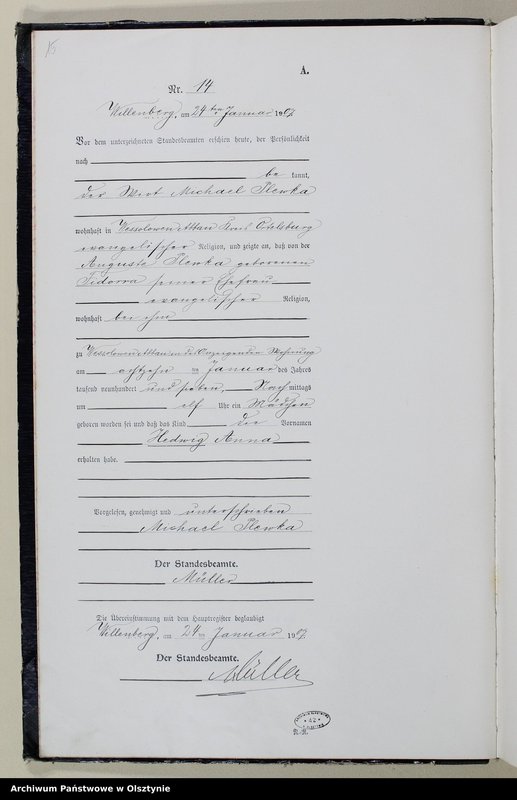 A.
Nr. 14
Willenberg, am 24ten Januar 1907
Vor dem unterzeichneten Standesbeamten erschien heute, der Persönlichkeit
nach
be kannt,
der Wirt Michael Plewka
wohnhaft in Wessolowen Abbau Kreis Ortelsburg
evangelischer Religion, und zeigte an, daß von der
Auguste Plewka geborenen
Sidorra seiner Ehefrau
evangelischer Religion,
wohnhaft bei ihm
zu Wessolowen Abbau in des Anzeigenden Wohnung
am achtzehn ten Januar des Jahres
tausend neunhundert und sieben, Nach mittags
um elf Uhr ein Mädchen
geboren worden sei und daß das Kind die Vornamen
Hedwig Anna
erhalten habe.
Vorgelesen, genehmigt und unterschrieben
Michael Plewka
Der Standesbeamte.
Müller
Die Übereinstimmung mit dem Hauptregister beglaubigt
Willenberg, am 24ten Januar 1907
Der Standesbeamte.
Müller
Archiwum Państwowe w Olsztynie